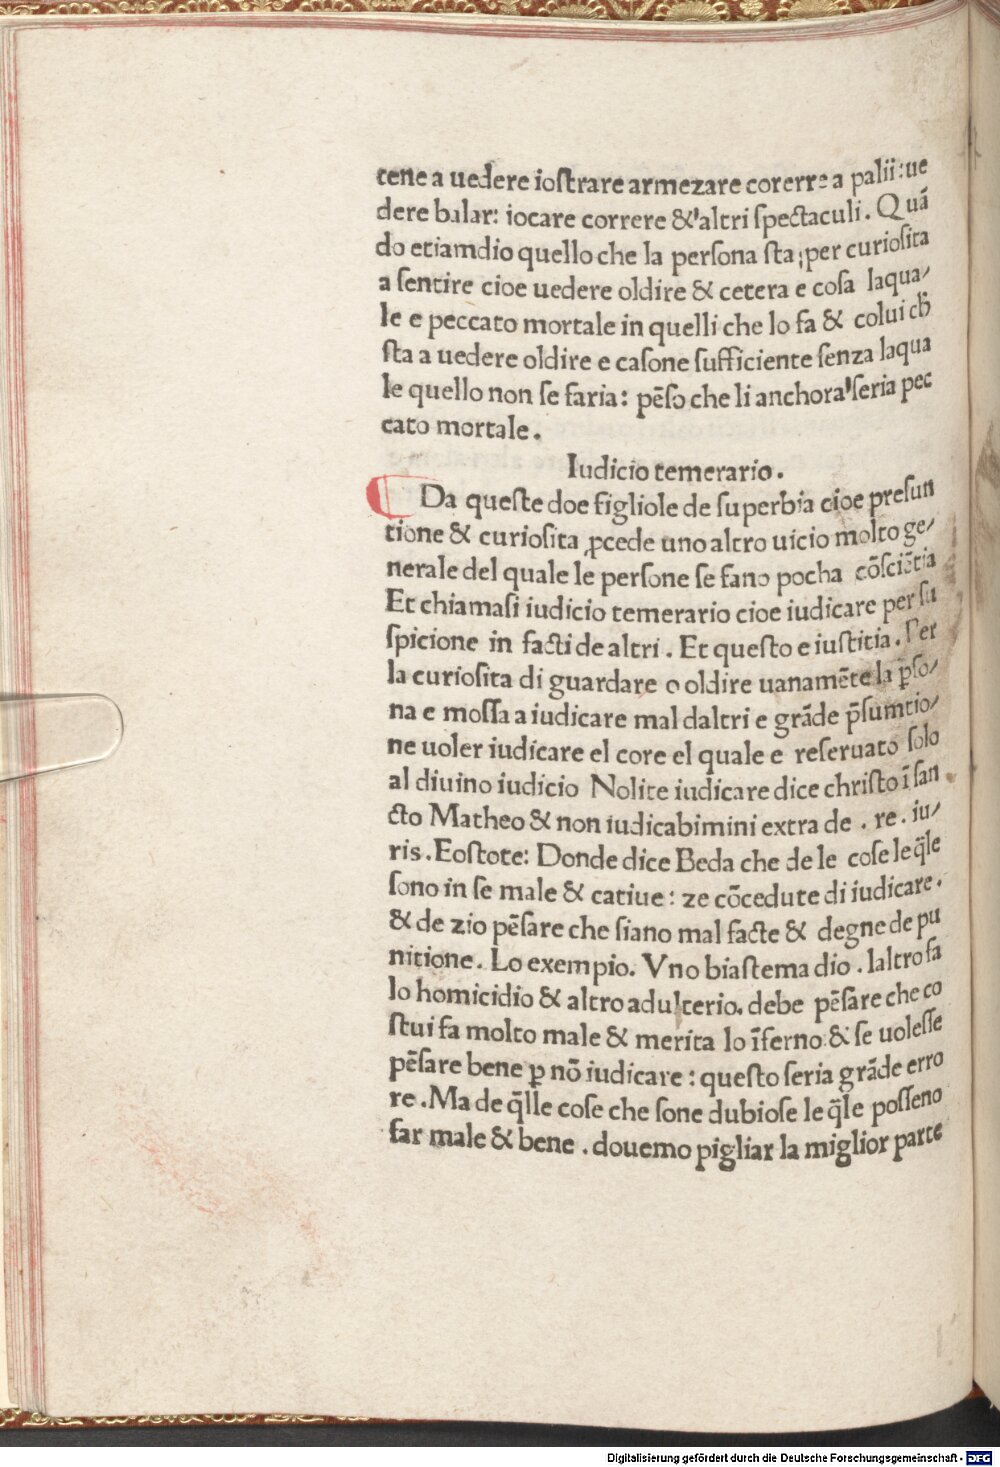 tene a uedere iostrare armezare corerre a palii: ue
dere balar: iocare correre & altri spectaculi. Quā
do etiamdio quello che la persona sta; per curiosita
a sentire cioe uedere oldire & cetera e cosa laqua/
le e peccato mortale in quelli che lo fa & colui cħ
sta a uedere oldire e casone sufficiente senza laqua
le quello non se faria: pēso che li anchora seria pec
cato mortale.
Iudicio temerario.
Da queste doe figliole de superbia cioe presun
tione & curiosita ꝓcede uno altro uicio molto ge/
nerale del quale le persone se fano pocha cōsciētia
Et chiamasi iudicio temerario cioe iudicare per su
spicione in facti de altri. Et questo e iustitia. Per
la curiosita di guardare o oldire uanamēte la p̄so/
na e mossa a iudicare mal daltri e grāde p̄sumtio/
ne uoler iudicare el core el quale e reseruato solo
al diuino iudicio Nolite iudicare dice christo ī san
cto Matheo & non iudicabimini extra de . re . iu/
ris. Eostote: Donde dice Beda che de le cose le q̄le
sono in se male & catiue: ze cōcedute di iudicare.
& de zio pēsare che siano mal facte & degne de pu
nitione. Lo exempio. Vno biastema dio . laltro fa
lo homicidio & altro adulterio. debe pēsare che co
stui fa molto male & merita lo īferno & se uolesse
pēsare bene ꝑ nō iudicare: questo seria grāde erro
re. Ma de q̄lle cose che sone dubiose le q̄le posseno
far male & bene . douemo pigliar la miglior parte
Digitalisierung gefördert durch die Deutsche Forschungsgemeinschaft - DFG